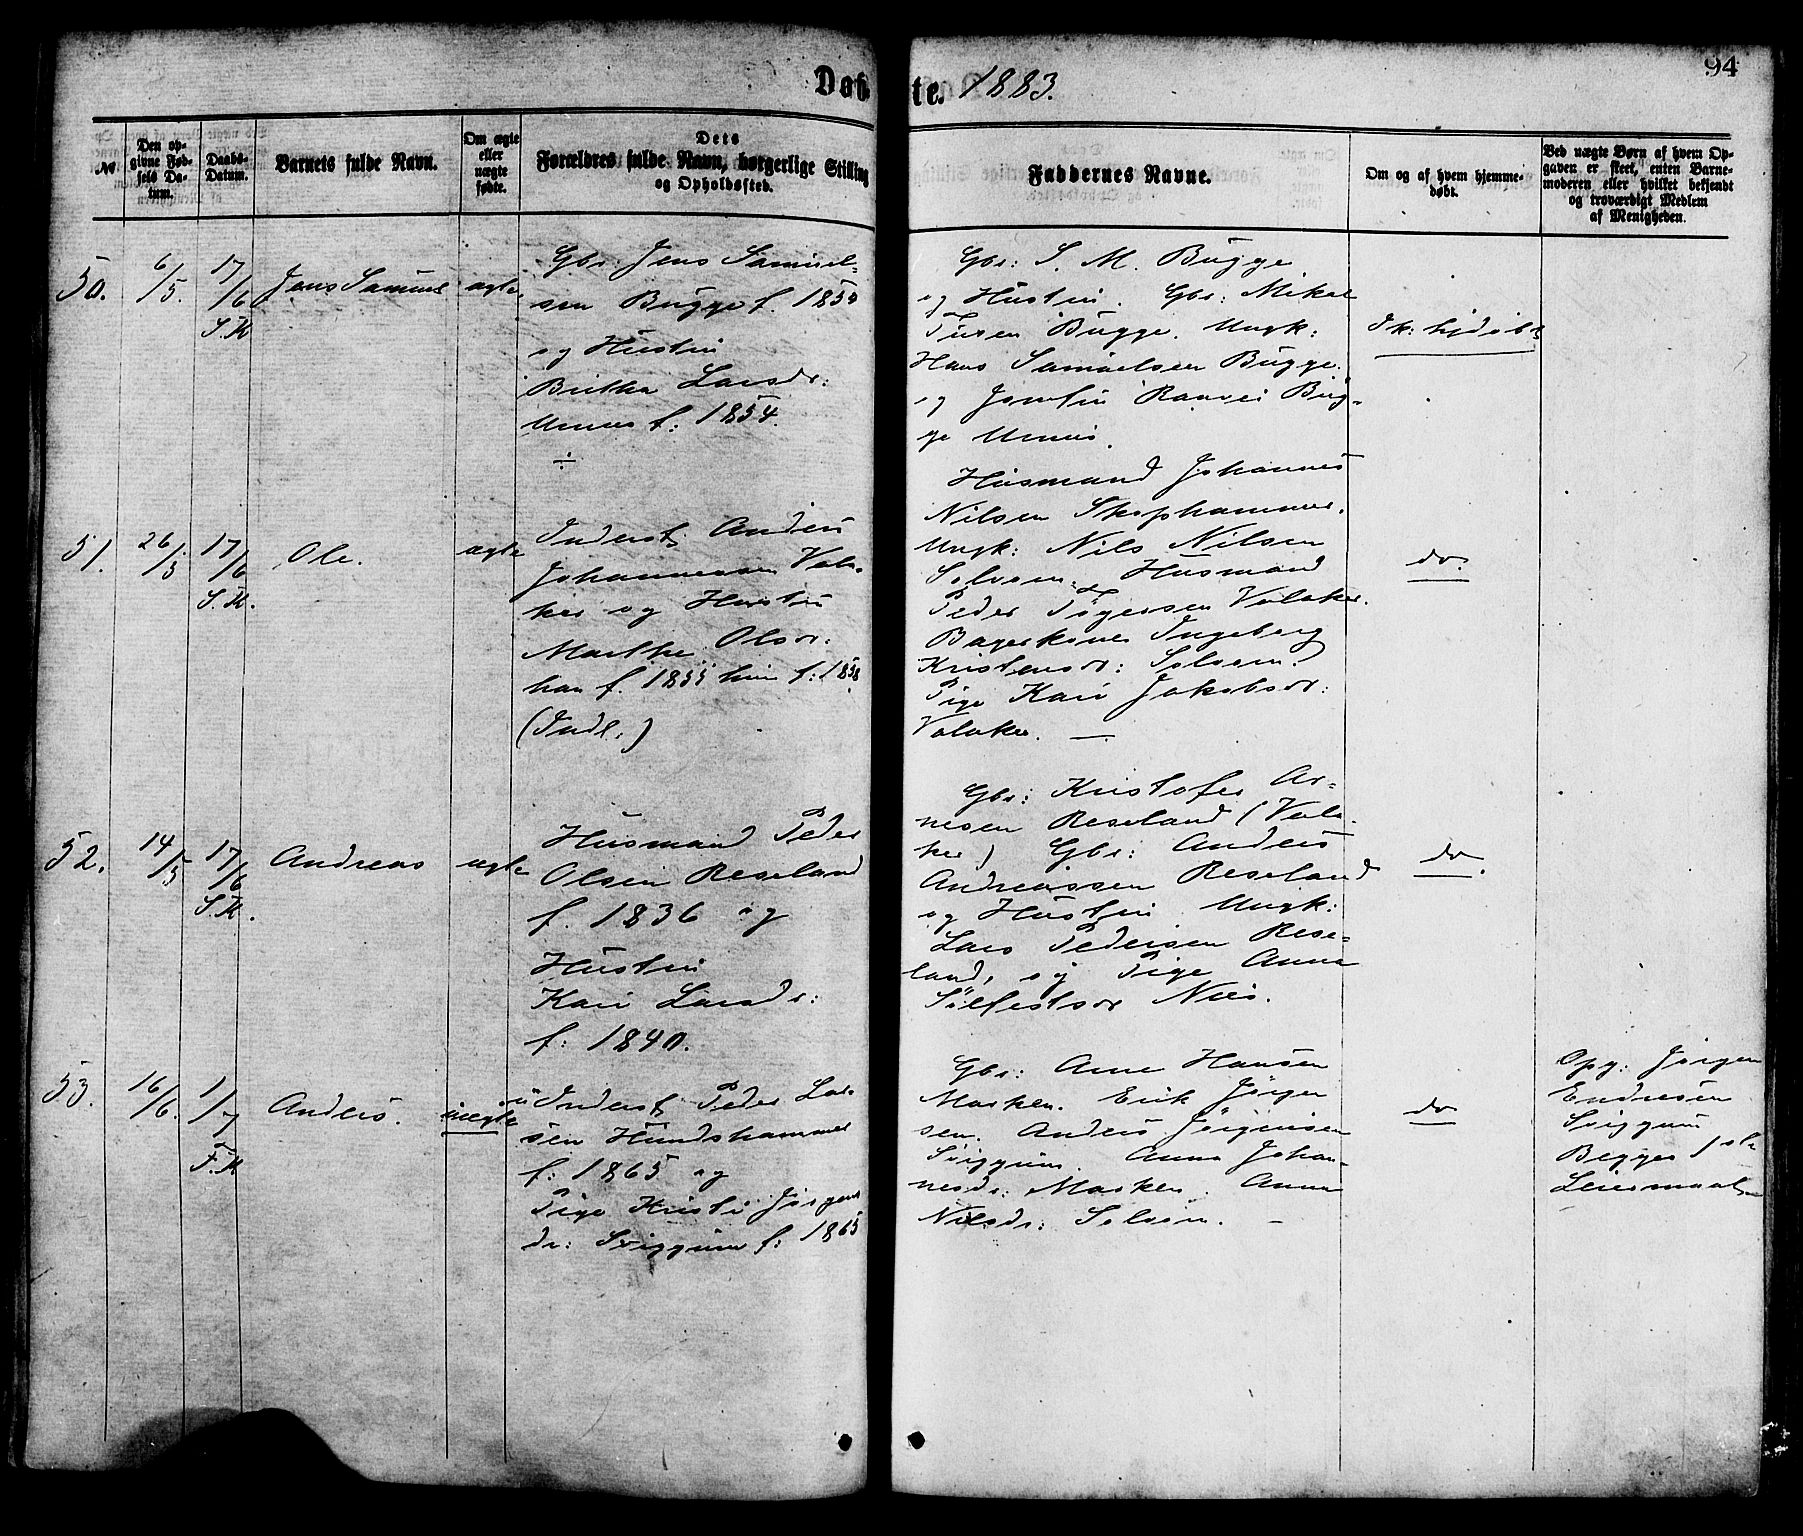 Døb
te. 1883.
94
№
Den opgivne Fødsels Datum.
Daabs-Datum.
Barnets fulde Navn.
Om ægte eller uægte fødte.
Dets Forældres fulde Navn, borgerlige Stilling og Opholdssted.
Faddernes Navne.
Om og af hvem hjemmedøbt.
Ved uægte Børn af hvem Opgaven er skeet, enten Barnemoderen eller hvilket bekjendt og troværdigt Medlem af Menigheden.
50.
6/5.
17/6
S.K
Jens Samuel
ægte
Gbr: Jens Samuel-
sen Bugge f. 1855
og Hustru
Britha Larsdr:
Unnus f: 1854.
÷
Gbr: S. M. Bugge
og Hustru. Gbr: Mikal
Turen Bugge. Ungk:
Hans Samuelsen Bugge
og Jomfru Ranvei Bug-
ge Unnus.
Ik: hjdøbt
51.
26/5
17/6
S.K.
Ole.
ægte
Inderst: Anders
Johannessen Vola-
ker og Hustru
Marthe Olsdr:
han f. 1855 hun f: 1858
(Indl.)
Husmand Johannes
Nilsen Skophammer.
Ungk: Nils Nilsen
Solsem. Husmand
Peder Tøgersen Volaker.
Bagerkone Ingeborg
Kristensdr: Solsem.
Pige Kari Jakobsdr:
Volaker. —
do.
52.
14/5
17/6
S.K.
Andreas
ægte
Husmand Peder
Olsen Reseland
f. 1836 og
Hustru
Kari Larsdr:
f: 1840.
Gbr: Kristofer Ar-
nesen Reseland (Vola-
ker) Gbr: Anders
Andreassen Reseland
og Hustru. Ungk:
Lars Pedersen Rese-
land, og Pige Anne
Silfestsdr Nees.
do.
53.
16/6.
1/7
F.K
Anders.
uægte
Inderst: Peder Lar-
sen Hundshammer
f: 1865 og
Pige Kristi Jørgens
dr: Sviggum f: 1865
Gbr: Arne Hansen
Marken. Erik Jørgen
sen. Anders Jørgensen
Sviggum. Anna Johan-
nesdr: Marken. Anna
Nilsdr: Solsem. —
do
Opg: Jørgen
Endresen
Sviggum
Begges 1ste
Leiermaal